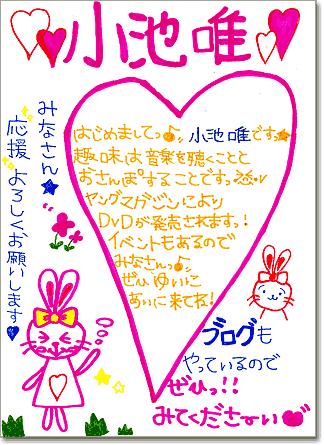 小池唯
みなさん★
応援よろしくお願いします♥
はじめましてっ♪小池唯ですっ★
趣味は音楽を聴くことと
おさんぽすることですっ
ヤングマガジンにより
DVDが発売されますっ!
イベントもあるので
みなさんっ♪
ぜひゆいに
あいに来てね!
ブログも
やっているので
ぜひっ!!
みてくださーい♥